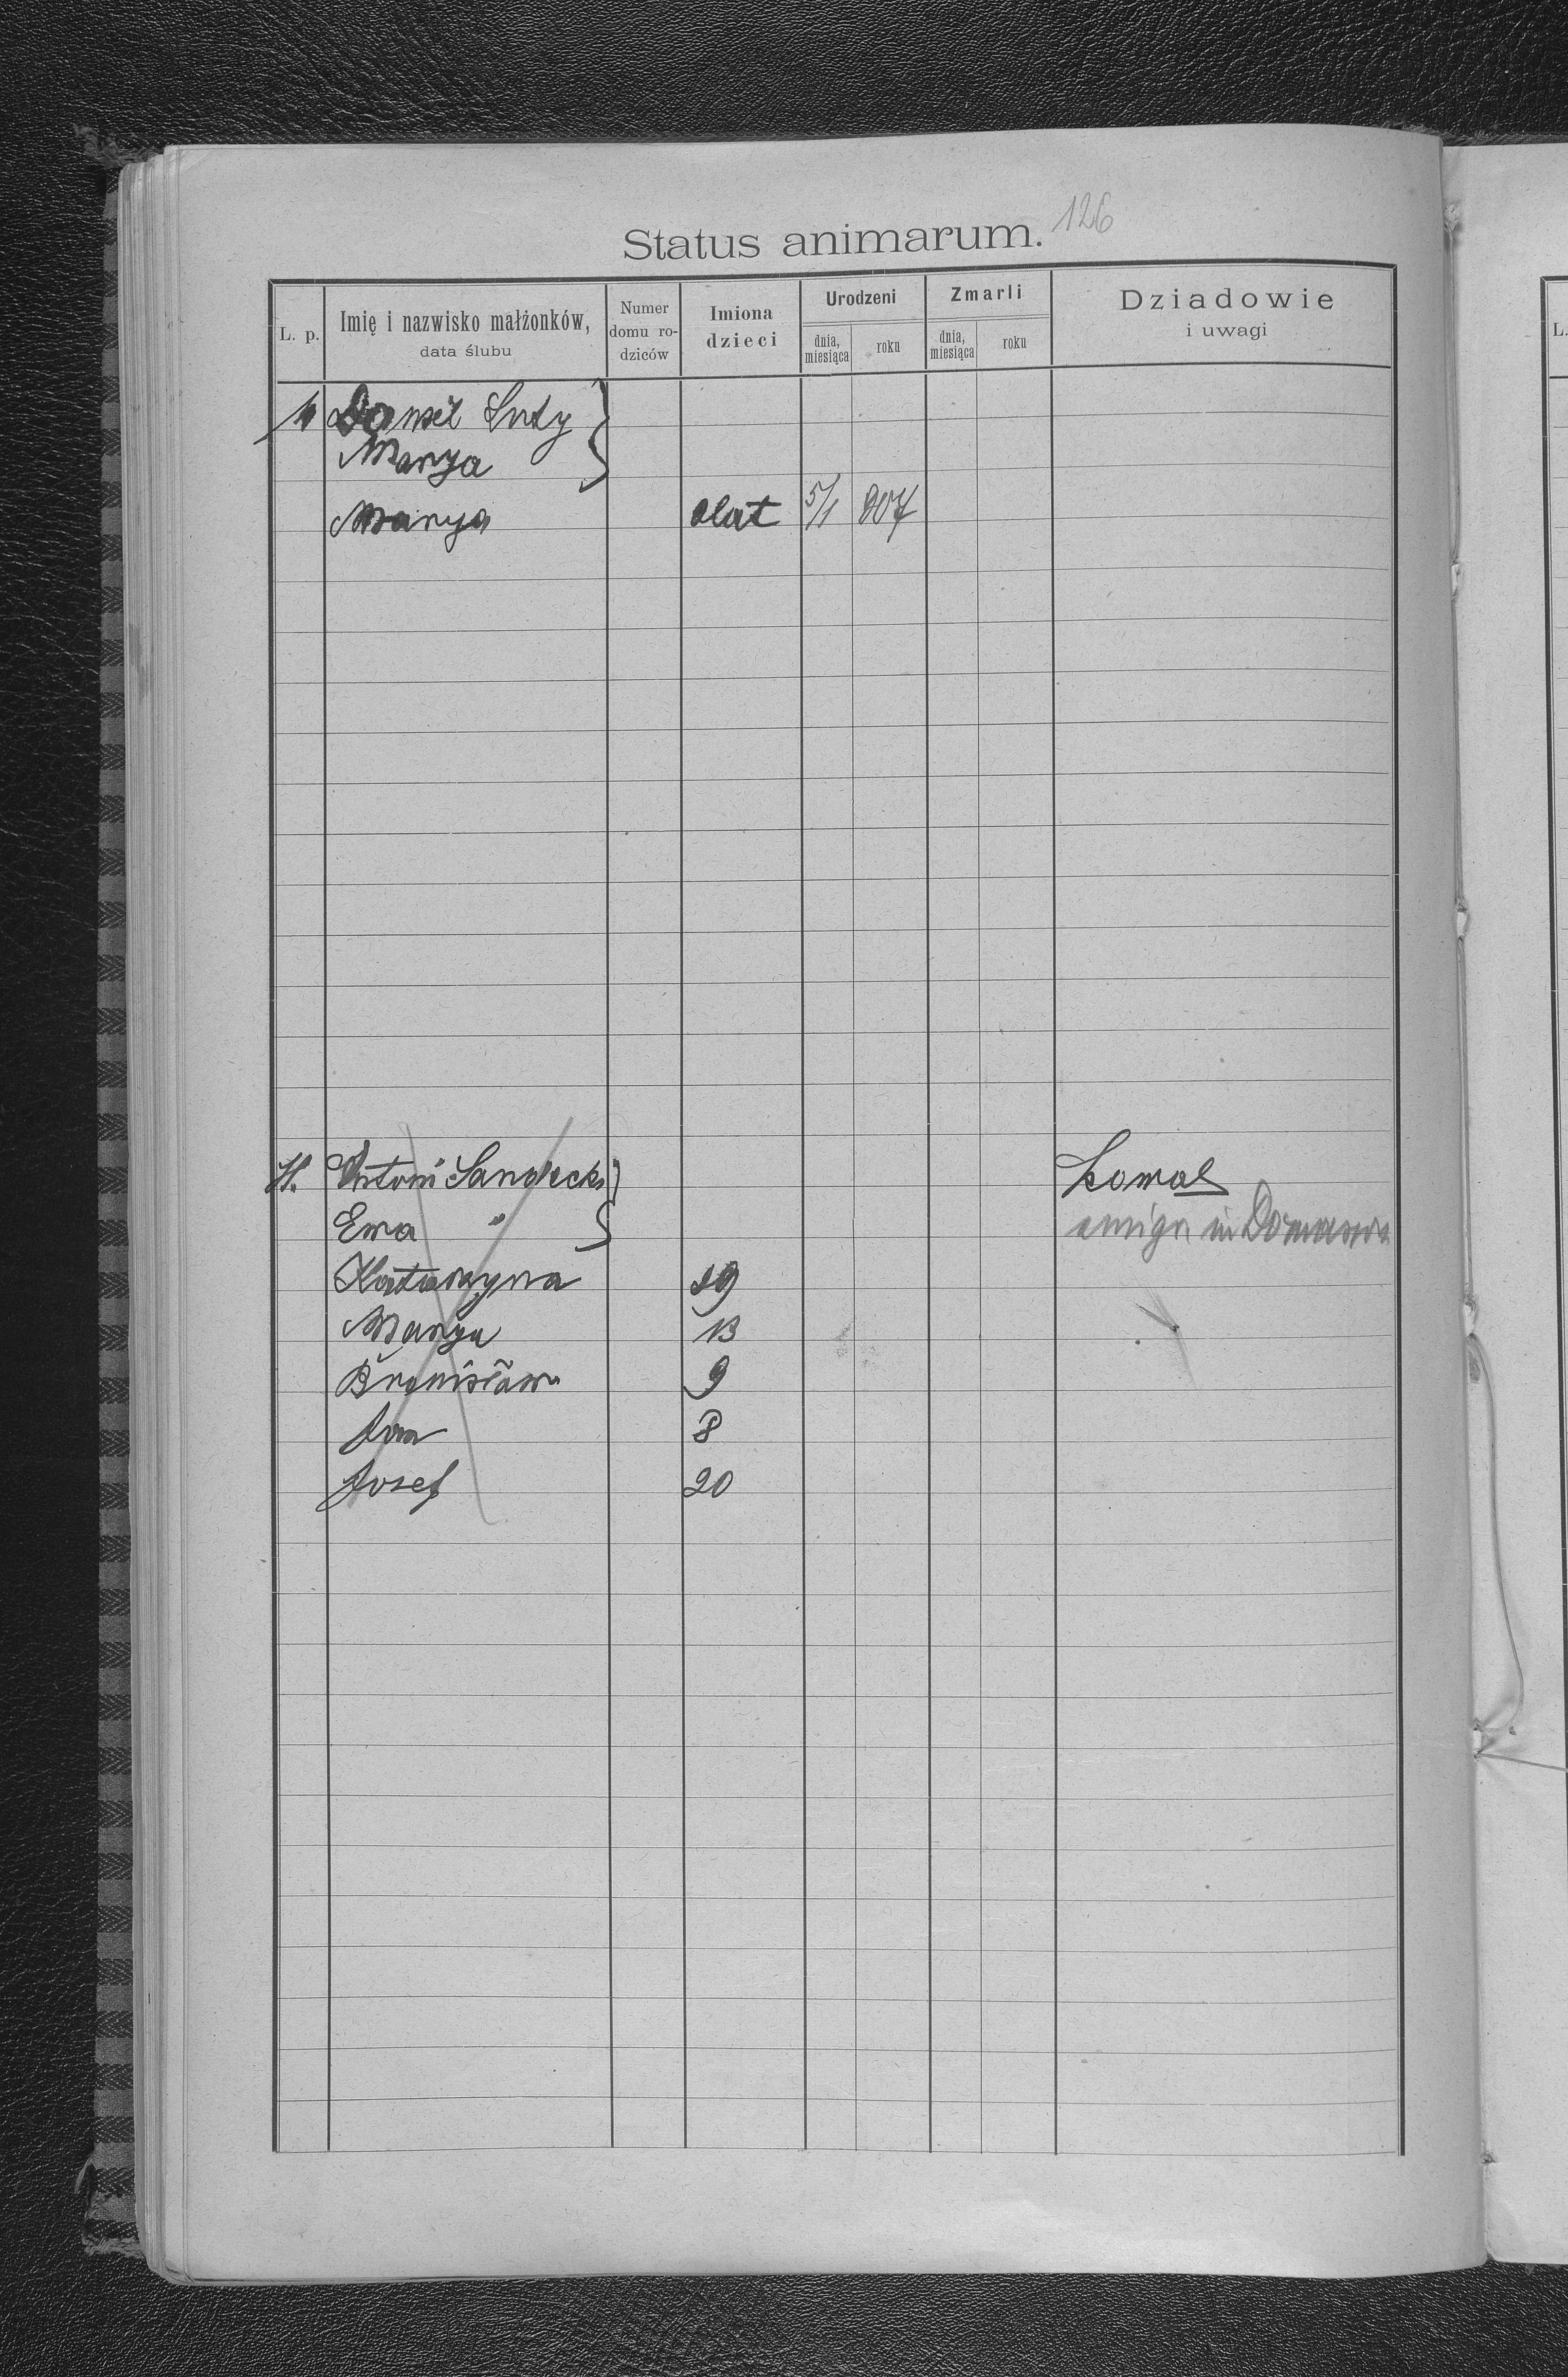 126
Status animarum.
L. p. Imię i nazwisko małżonków, data ślubu Numer domu rodziców Imiona dzieci Urodzeni dnia, miesiąca roku Zmarli dnia, miesiąca roku Dziadowie i uwagi
Daniel Luty
Marya
Marya olat 5/1 907
Antoni Sandecki Kowal
Ewa " emigr. in
Katarzyna 19
Marya 13
Bronisława 9
Jan 8
Josef 20
L.